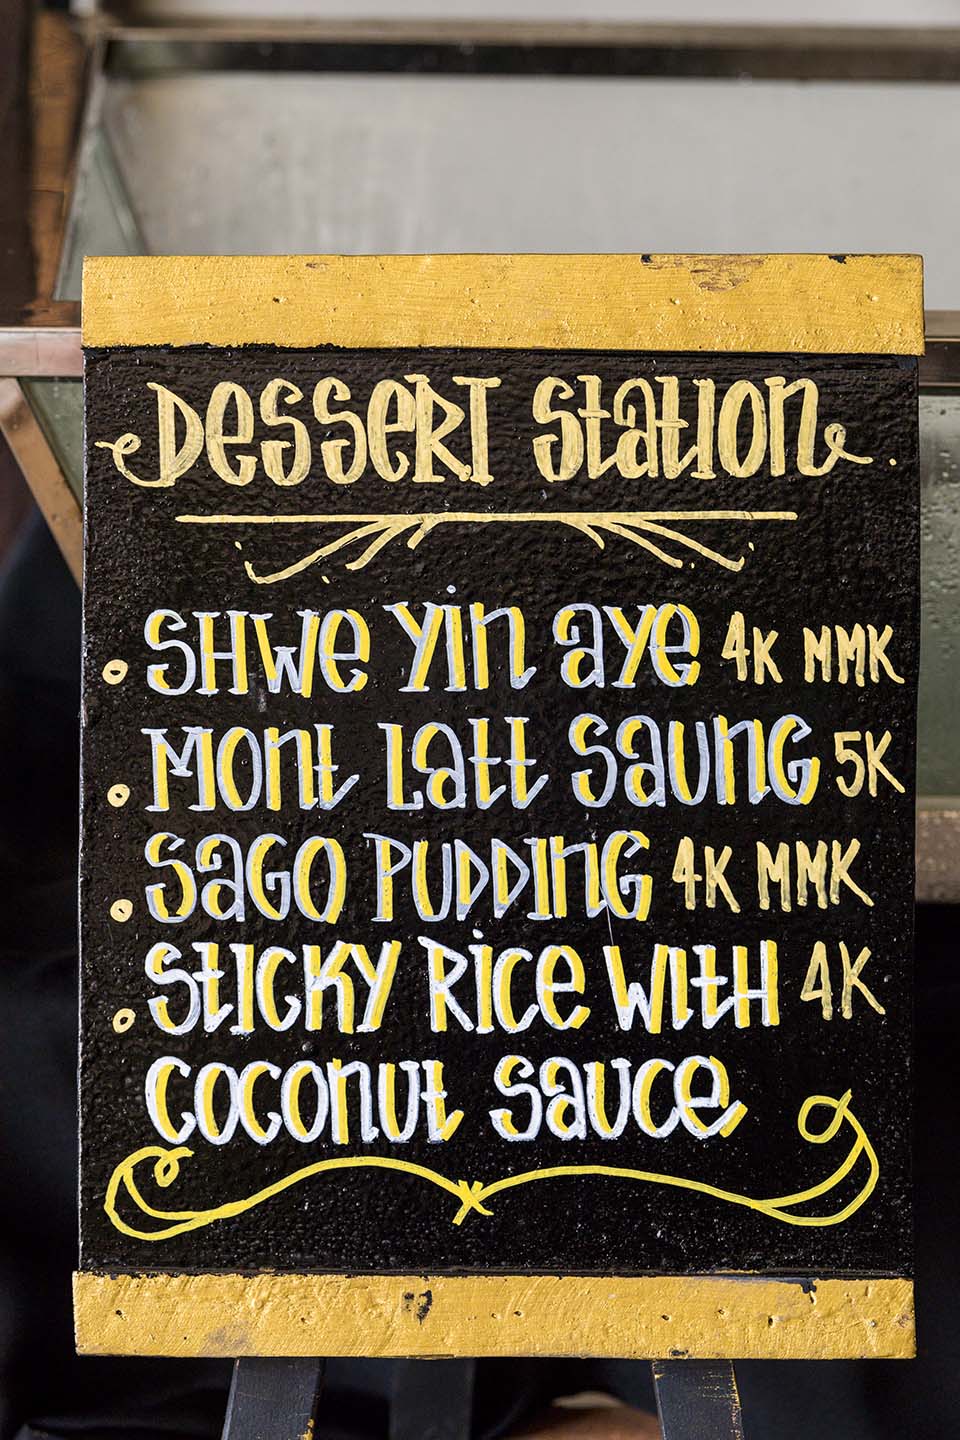 Dessert Station.
Shwe Yin Aye 4K MMK
Mont Latt Saung 5K
Sago Pudding 4K MMK
Sticky Rice with 4K
Coconut Sauce